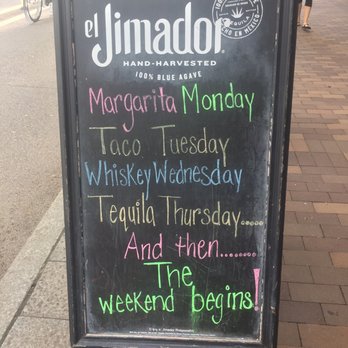 el Jimador
HAND-HARVESTED
100% BLUE AGAVE
Margarita Monday
Taco Tuesday
Whiskey Wednesday
Tequila Thursday.....
And then........
The
weekend begins!